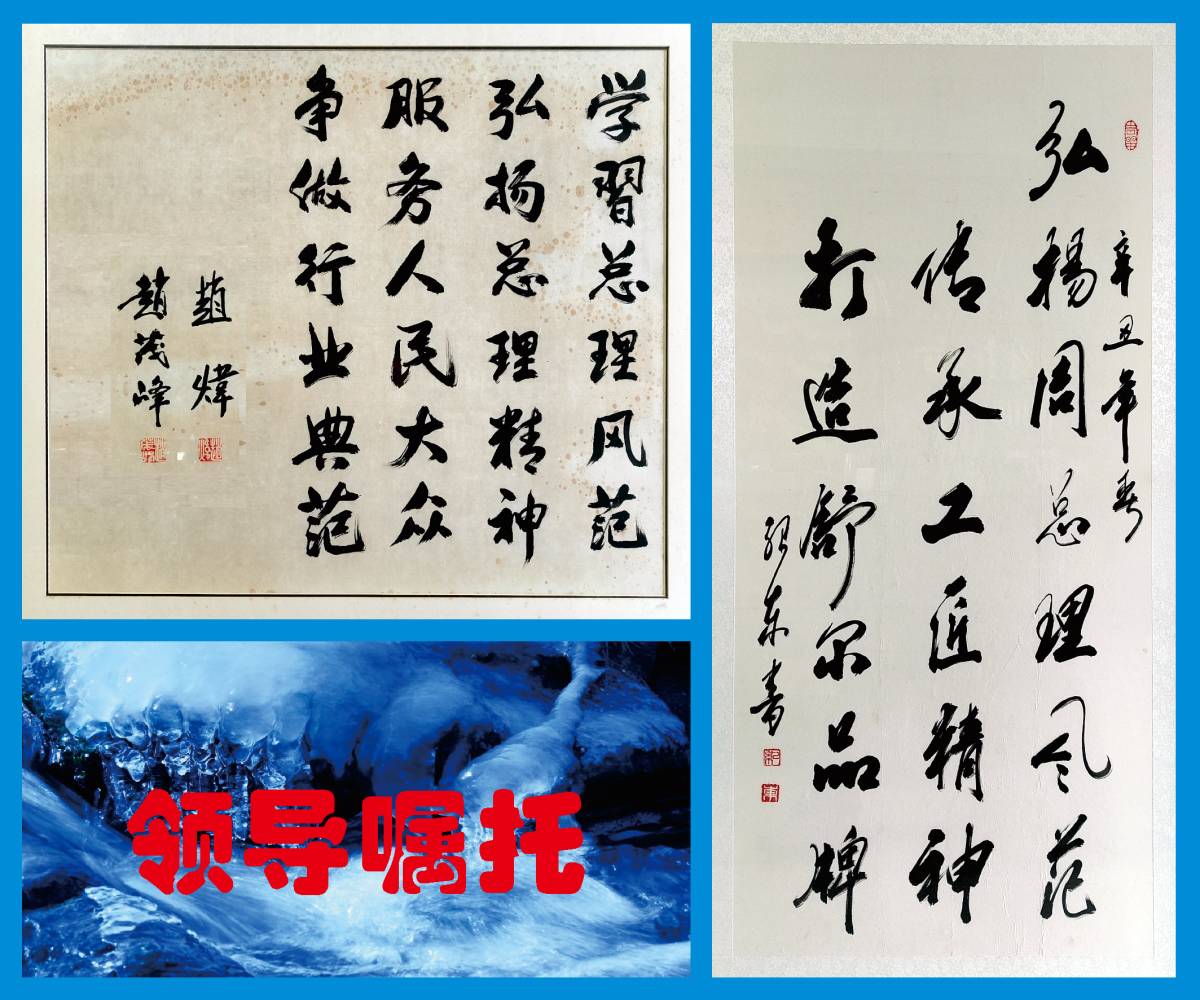 学習总理风范
弘扬总理精神
服务人民大众
争做行业典范
趙煒
趙茂峰
辛丑年春
弘揚周总理风范
传承工匠精神
打造舒尔品牌
纪东書
领导嘱托